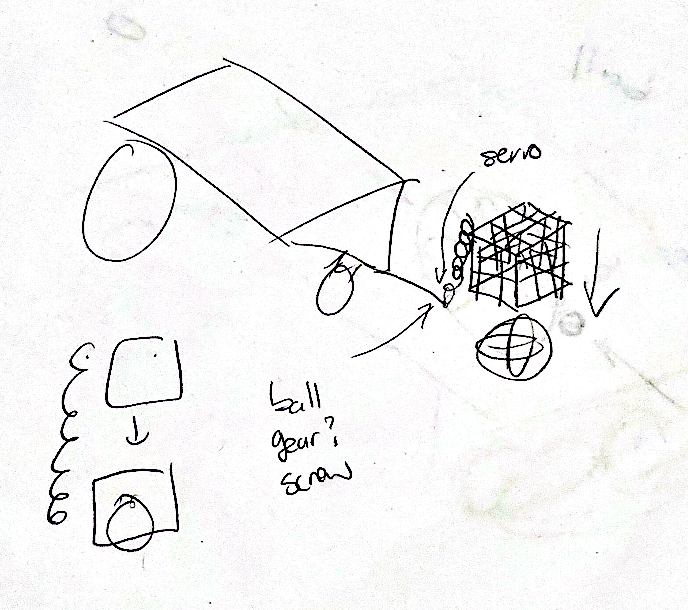 servo
ball
gear?
screw